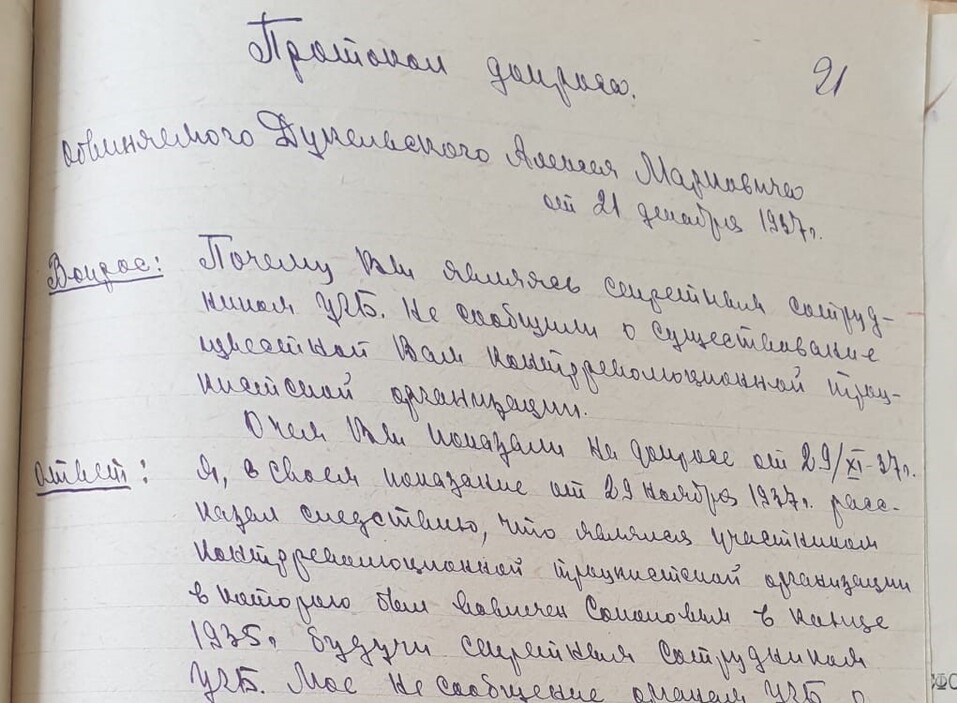 Протокол допроса.
21
обвиняемого Дукельского Алексея Марковича
от 21 декабря 1937г.
Вопрос: Почему Вы являясь секретным сотруд-
ником УГБ. Не сообщили о существование
известной Вам контрреволюционной троц-
кистской организации.
О чем Вы показали на допросе от 29/XI-37г.
Ответ: Я, в своем показание от 29 ноября 1937г. расс-
казал следствию, что являлся участником
контрреволюционной троцкистской организации
в которою был вовлечен Соколовым в конце
1935г. будучи секретным сотрудником
УГБ. Мое не сообщение органам УГБ о